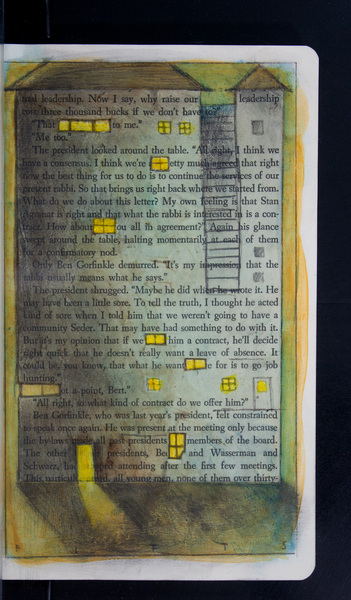 leadership. Now I say, why raise our leadership
three thousand bucks if we don't have to?"
"That to me."
"Me too."
The president looked around the table. "All right, I think we
have a consensus. I think we're etty much agreed that right
now the best thing for us to do is to continue the services of our
present rabbi. So that brings us right back where we started from.
What do we do about this letter? My own feeling is that Stan
Agranat is right and that what the rabbi is interested in is a con-
tract. How about ou all in agreement?" Again his glance
swept around the table, halting momentarily at each of them
for a confirmatory nod.
Only Ben Gorfinkle demurred. "It's my impression that the
rabbi usually means what he says."
The president shrugged. "Maybe he did when he wrote it. He
may have been a little sore. To tell the truth, I thought he acted
kind of sore when I told him that we weren't going to have a
community Seder. That may have had something to do with it.
But it's my opinion that if we him a contract, he'll decide
right quick that he doesn't really want a leave of absence. It
could be, you know, that what he want e for is to go job
hunting."
ot a point, Bert."
"All right, so what kind of contract do we offer him?"
Ben Gorfinkle, who was last year's president, felt constrained
to speak once again. He was present at the meeting only because
the by-laws made all past presidents members of the board.
The other presidents, Be and Wasserman and
Schwarz, had stopped attending after the first few meetings.
This particular all young men, none of them over thirty-